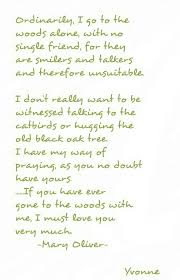 Ordinarily, I go to the
woods alone, with no
single friend, for they
are smilers and talkers
and therefore unsuitable.
I don't really want to be
witnessed talking to the
catbirds or hugging the
old black oak tree.
I have my way of
praying, as you no doubt
have yours.
....If you have ever
gone to the woods with
me, I must love you
very much.
-Mary Oliver-
Yvonne